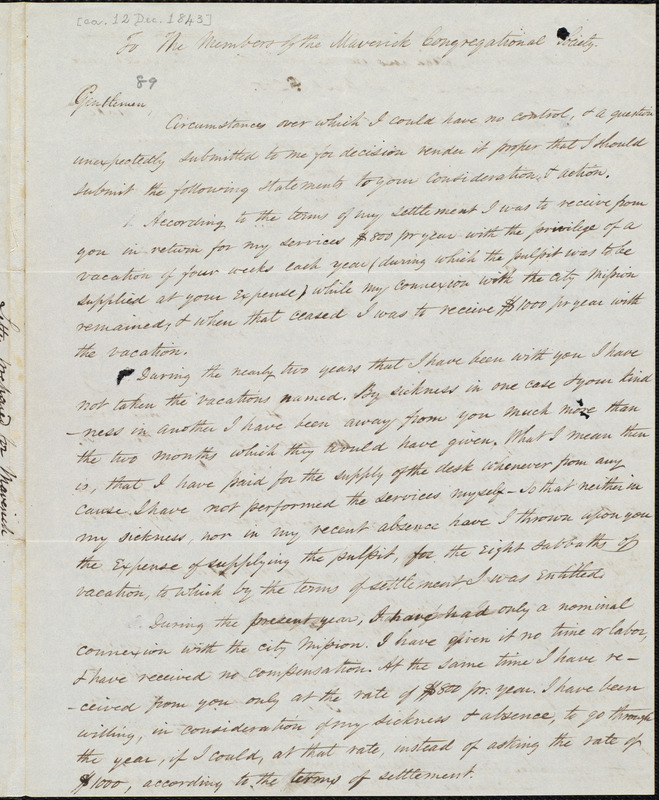 [ca. 12 Dec. 1843]
To The Members of the Maverick Congregational Society.
89
Gentlemen,
Circumstances over which I could have no control, & a question
unexpectedly submitted to me for decision render it proper that I should
submit the following statements to your consideration & action.
1. According to the terms of my settlement I was to receive from
you in return for my services $800 pr year with the privilege of a
vacation of four weeks each year (during which the pulpit was to be
supplied at your expense) while my connexion with the City Mission
remained, & when that ceased I was to receive $1000 pr year with
the vacation.
During the nearly two years that I have been with you I have
not taken the vacations named. By sickness in one case & your kind
-ness in another I have been away from you much more than
the two months which they would have given. What I mean then
is, that I have paid for the supply of the desk whenever from any
cause I have not performed the services myself - So that neither in
my sickness, nor in my recent absence have I thrown upon you
the expense of supplying the pulpit, for the eight sabbaths of
vacation, to which by the terms of settlement I was entitled.
During the present year, I have had only a nominal
connexion with the city Mission. I have given it no time or labor,
& have received no compensation. At the same time I have re-
-ceived from you only at the rate of $800 pr. year. I have been
willing, in consideration of my sickness & absence, to go through
the year, if I could, at that rate, instead of asking the rate of
$1000, according to the terms of settlement.
Letter for Maverick